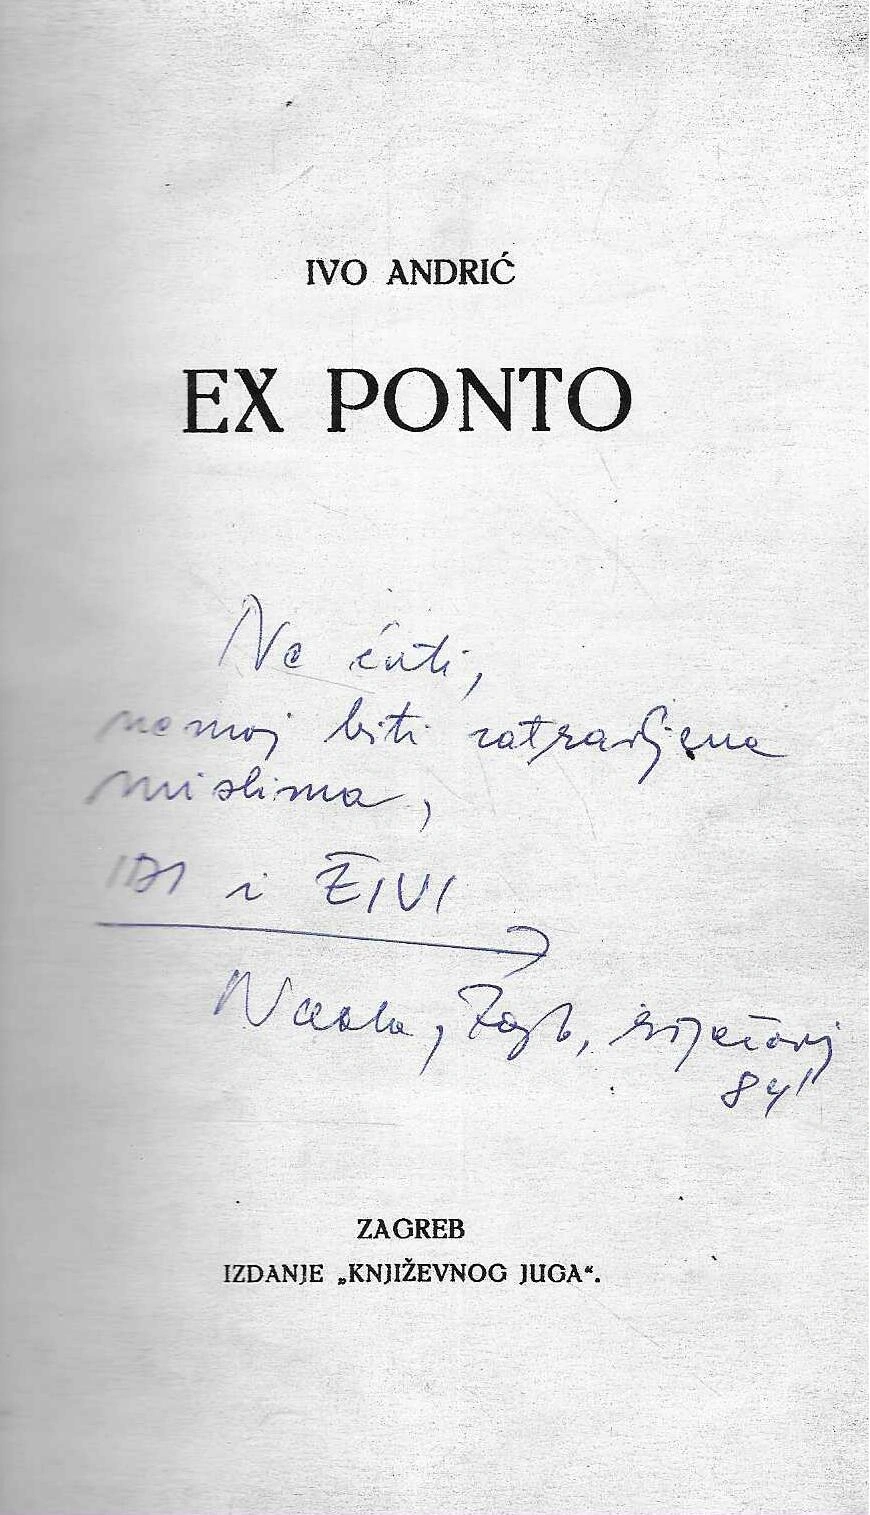 IVO ANDRIĆ
EX PONTO
Ne ćuti,
nemoj biti zatravljena
mislima,
IDI i ŽIVI
Zagb, siječanj
84'
ZAGREB
IZDANJE „KNJIŽEVNOG JUGA“.